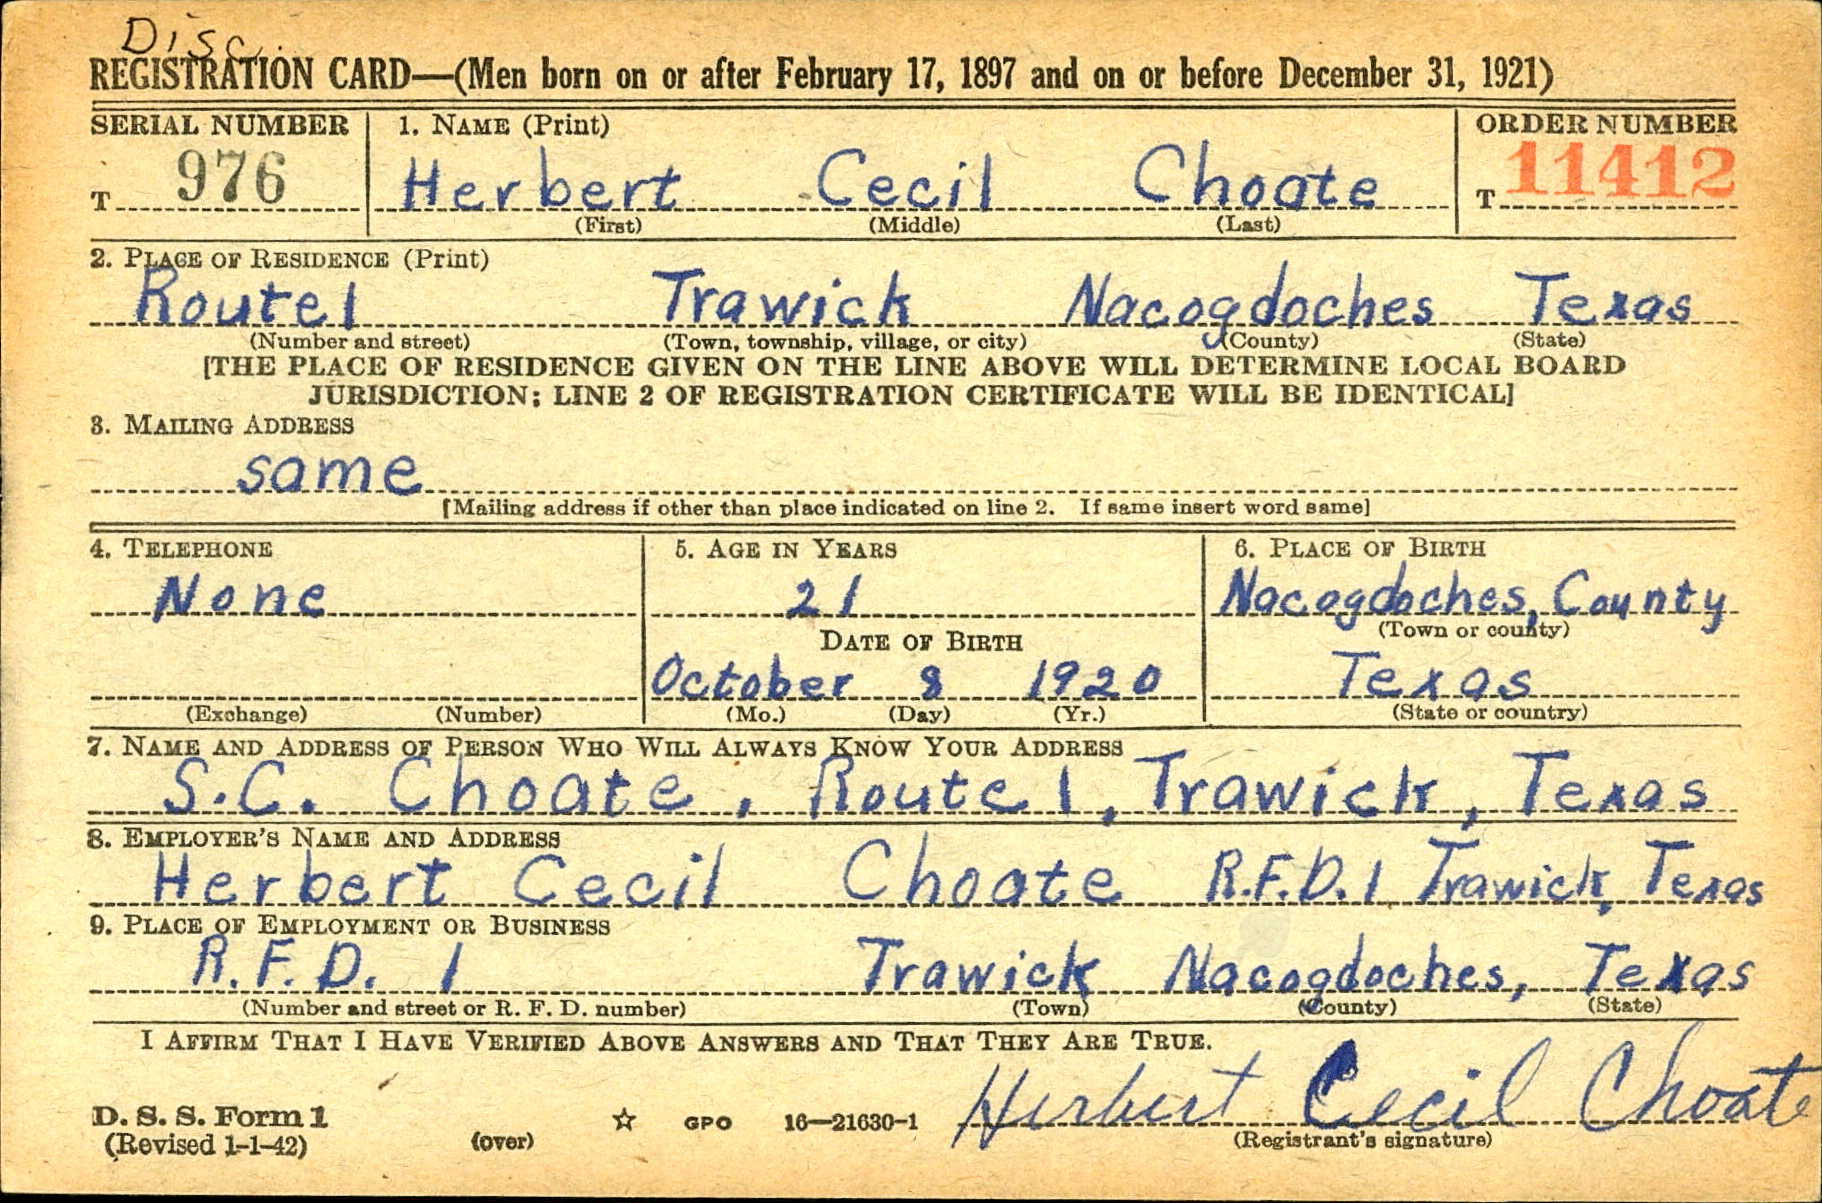 Disc.
REGISTRATION CARD—(Men born on or after February 17, 1897 and on or before December 31, 1921)
SERIAL NUMBER 1. NAME (Print) ORDER NUMBER
T 976 Herbert Cecil Choate T 11412
(First) (Middle) (Last)
2. PLACE OF RESIDENCE (Print)
Route 1 Trawick Nacogdoches Texas
(Number and street) (Town, township, village, or city) (County) (State)
[THE PLACE OF RESIDENCE GIVEN ON THE LINE ABOVE WILL DETERMINE LOCAL BOARD
JURISDICTION; LINE 2 OF REGISTRATION CERTIFICATE WILL BE IDENTICAL]
3. MAILING ADDRESS
same
[Mailing address if other than place indicated on line 2. If same insert word same]
4. TELEPHONE 5. AGE IN YEARS 6. PLACE OF BIRTH
None 21 Nacogdoches, County
DATE OF BIRTH (Town or county)
October 8 1920 Texas
(Exchange) (Number) (Mo.) (Day) (Yr.) (State or country)
7. NAME AND ADDRESS OF PERSON WHO WILL ALWAYS KNOW YOUR ADDRESS
S.C. Choate, Route 1, Trawick, Texas
8. EMPLOYER'S NAME AND ADDRESS
Herbert Cecil Choate R.F.D. 1 Trawick, Texas
9. PLACE OF EMPLOYMENT OR BUSINESS
R.F.D. 1 Trawick Nacogdoches, Texas
(Number and street or R. F. D. number) (Town) (County) (State)
I AFFIRM THAT I HAVE VERIFIED ABOVE ANSWERS AND THAT THEY ARE TRUE.
Herbert Cecil Choate
D. S. S. Form 1 ☆ GPO 16—21630-1
(Revised 1-1-42) (over) (Registrant's signature)